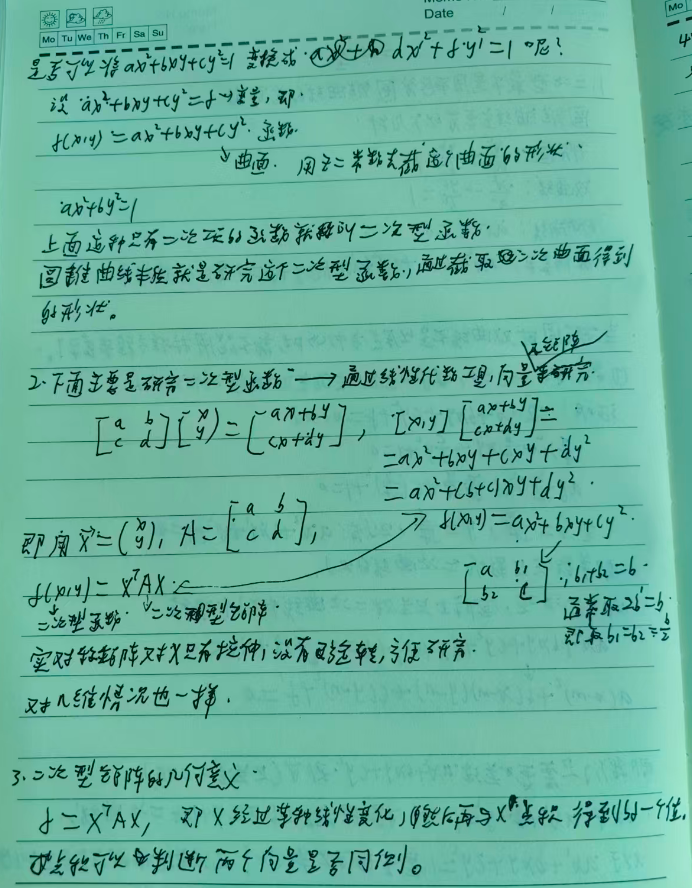 Date / /
Mo
Mo Tu We Th Fr Sa Su
是否 ax²+bxy+cy²=1 变换成 dx²+fy²=1 呢?
设 ax²+bxy+cy²=f 变量, 即
f(x,y)=ax²+bxy+cy² 函数
↘曲面. 用 去截这个曲面的形状.
ax²+by²=1
上面这种只有二次项的函数就称为二次型函数.
圆锥曲线本质就是研究这个二次型函数, 通过截取 二次曲面得到
的形状。
无矩阵
2. 下面主要是研究二次型函数 → 通过线性代数工具, 向量 研究.
[a b c d][x y]=[ax+by cx+dy], [x,y][ax+by cx+dy]=
=ax²+bxy+cxy+dy²
=ax²+(b+c)xy+dy².
即用 X⃗=(x y), A=[a b c d],
f(x,y)=ax²+bxy+cy².
f(x,y)=XᵀAX.
[a b₁ b₂ c] ; b₁+b₂=b.
二次型函数. 二次型矩阵
通常取2b'=b.
即取b₁=b₂=b/2
实对称矩阵对X只有拉伸, 没有旋转, 方便研究.
对n维情况也一样.
3. 二次型矩阵的几何意义
f=XᵀAX, 即X经过 线性变化, 然后再与X 得到的一个值,
两个向量是否同向。